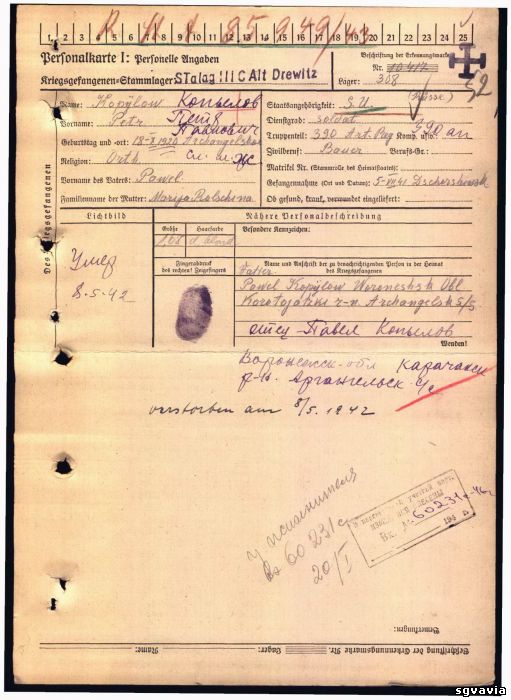 1 2 3 4 5 6 7 8 9 10 11 12 13 14 15 16 17 18 19 20 21 22 23 24 25
Personalkarte I: Personelle Angaben
Kriegsgefangenen-Stammlager: Stalag III C Alt Drewitz
Beschriftung der Erkennungsmarke
Nr. 10417
Lager: 308
32
Des Kriegsgefangenen
Name: Kopylow Копылов
Vorname: Petr Петр
Павлович
Geburtstag und -ort: 1920 Archangelsk
Religion: Orth.
Vorname des Vaters: Pawel
Familienname der Mutter: Marija
Staatsangehörigkeit: S.U. (Russe)
Dienstgrad: Soldat
Truppenteil: 390 Art. Reg Komp. usw.: 390 ап
Zivilberuf: Bauer Berufs-Gr.:
Matrikel Nr. (Stammrolle des Heimatstaates):
Gefangennahme (Ort und Datum):
Ob gesund, krank, verwundet eingeliefert:
Lichtbild
Умер
8-5-42
Nähere Personalbeschreibung
Größe Haarfarbe Besondere Kennzeichen:
1,68 d. blond
Fingerabdruck
des rechten! Zeigefingers
Name und Anschrift der zu benachrichtigenden Person in der Heimat
des Kriegsgefangenen
Vater:
Pawel Kopylow Woroneshsk Obl
r-n. Archangelsk S/s
отец - Павел Копылов
Wenden!
Воронежск. обл
р-н. Архангельск с/с
verstorben am 8/5. 1942
У исполнителя
Вх 60231с
20/I
Вх. № 60231с - 46г.
194
Bemerkungen:
Beschriftung der Erkennungsmarke Nr.
Lager:
Name:
sgvavia